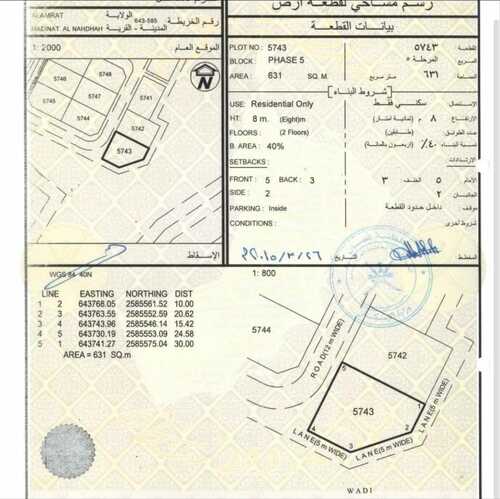 رسم مساحي لقطعة أرض
ALAMRAT
الولاية
643-585
رقم الخريطة
MADINAT AL NAHDHAH
المدينة - القرية
بيانات القطعة
1: 2000
الموقع العام
N
5746
5745
5741
5744
5742
5743
PLOT NO : 5743
٥٧٤٣
القطعة
BLOCK: PHASE 5
المرحلة ٥
AREA : 631 SQ. M
متر مربع
٦٣١
المساحة
شروط البناء
USE: Residential Only
سكني فقط
الاستعمال
HT: 8 m. (Eight)m
٨ م.
الارتفاع
FLOORS : (2 Floors)
(طابقين)
عدد الطوابق
B. AREA: 40%
٤٠٪ (اربعون بالمائة)
مساحة البناء
SETBACKS :
الارتدادات
FRONT : 5 BACK : 3
٣
الخلف
٥
الأمام
SIDE : 2
٢
الجانبان
PARKING : Inside
داخل حدود القطعة
موقف
CONDITIONS :
شروط أخرى
الإسقاط
التاريخ
المخطط
WGS 84 40N
1: 800
LINE EASTING NORTHING DIST
1 2 643768.05 2585561.52 10.00
2 3 643763.55 2585552.59 20.62
3 4 643743.96 2585546.14 15.42
4 5 643730.19 2585553.09 24.58
5 1 643741.27 2585575.04 30.00
AREA = 631 SQ.m
5744
ROAD(12 m WIDE)
5742
5
5743
1
2
3
4
LANE(5 m WIDE)
LANE(5 m WIDE)
LANE(5 m WIDE)
WADI